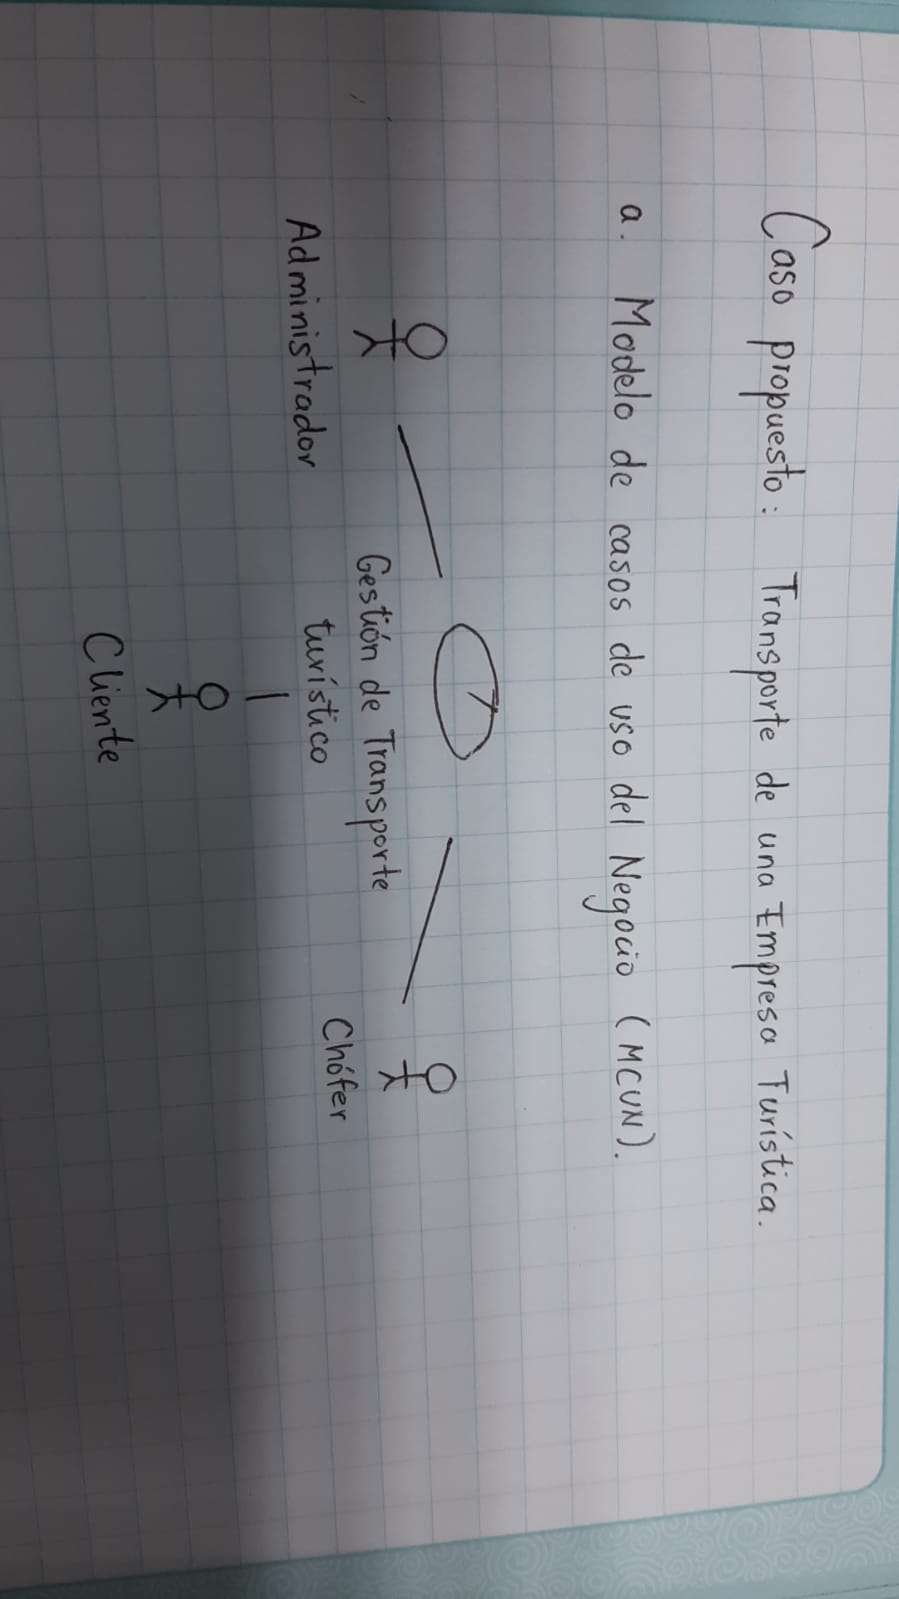 Caso propuesto: Transporte de una Empresa Turística.
a. Modelo de casos de uso del Negocio (MCUN).
Gestión de Transporte
turístico
Administrador
Chófer
Cliente